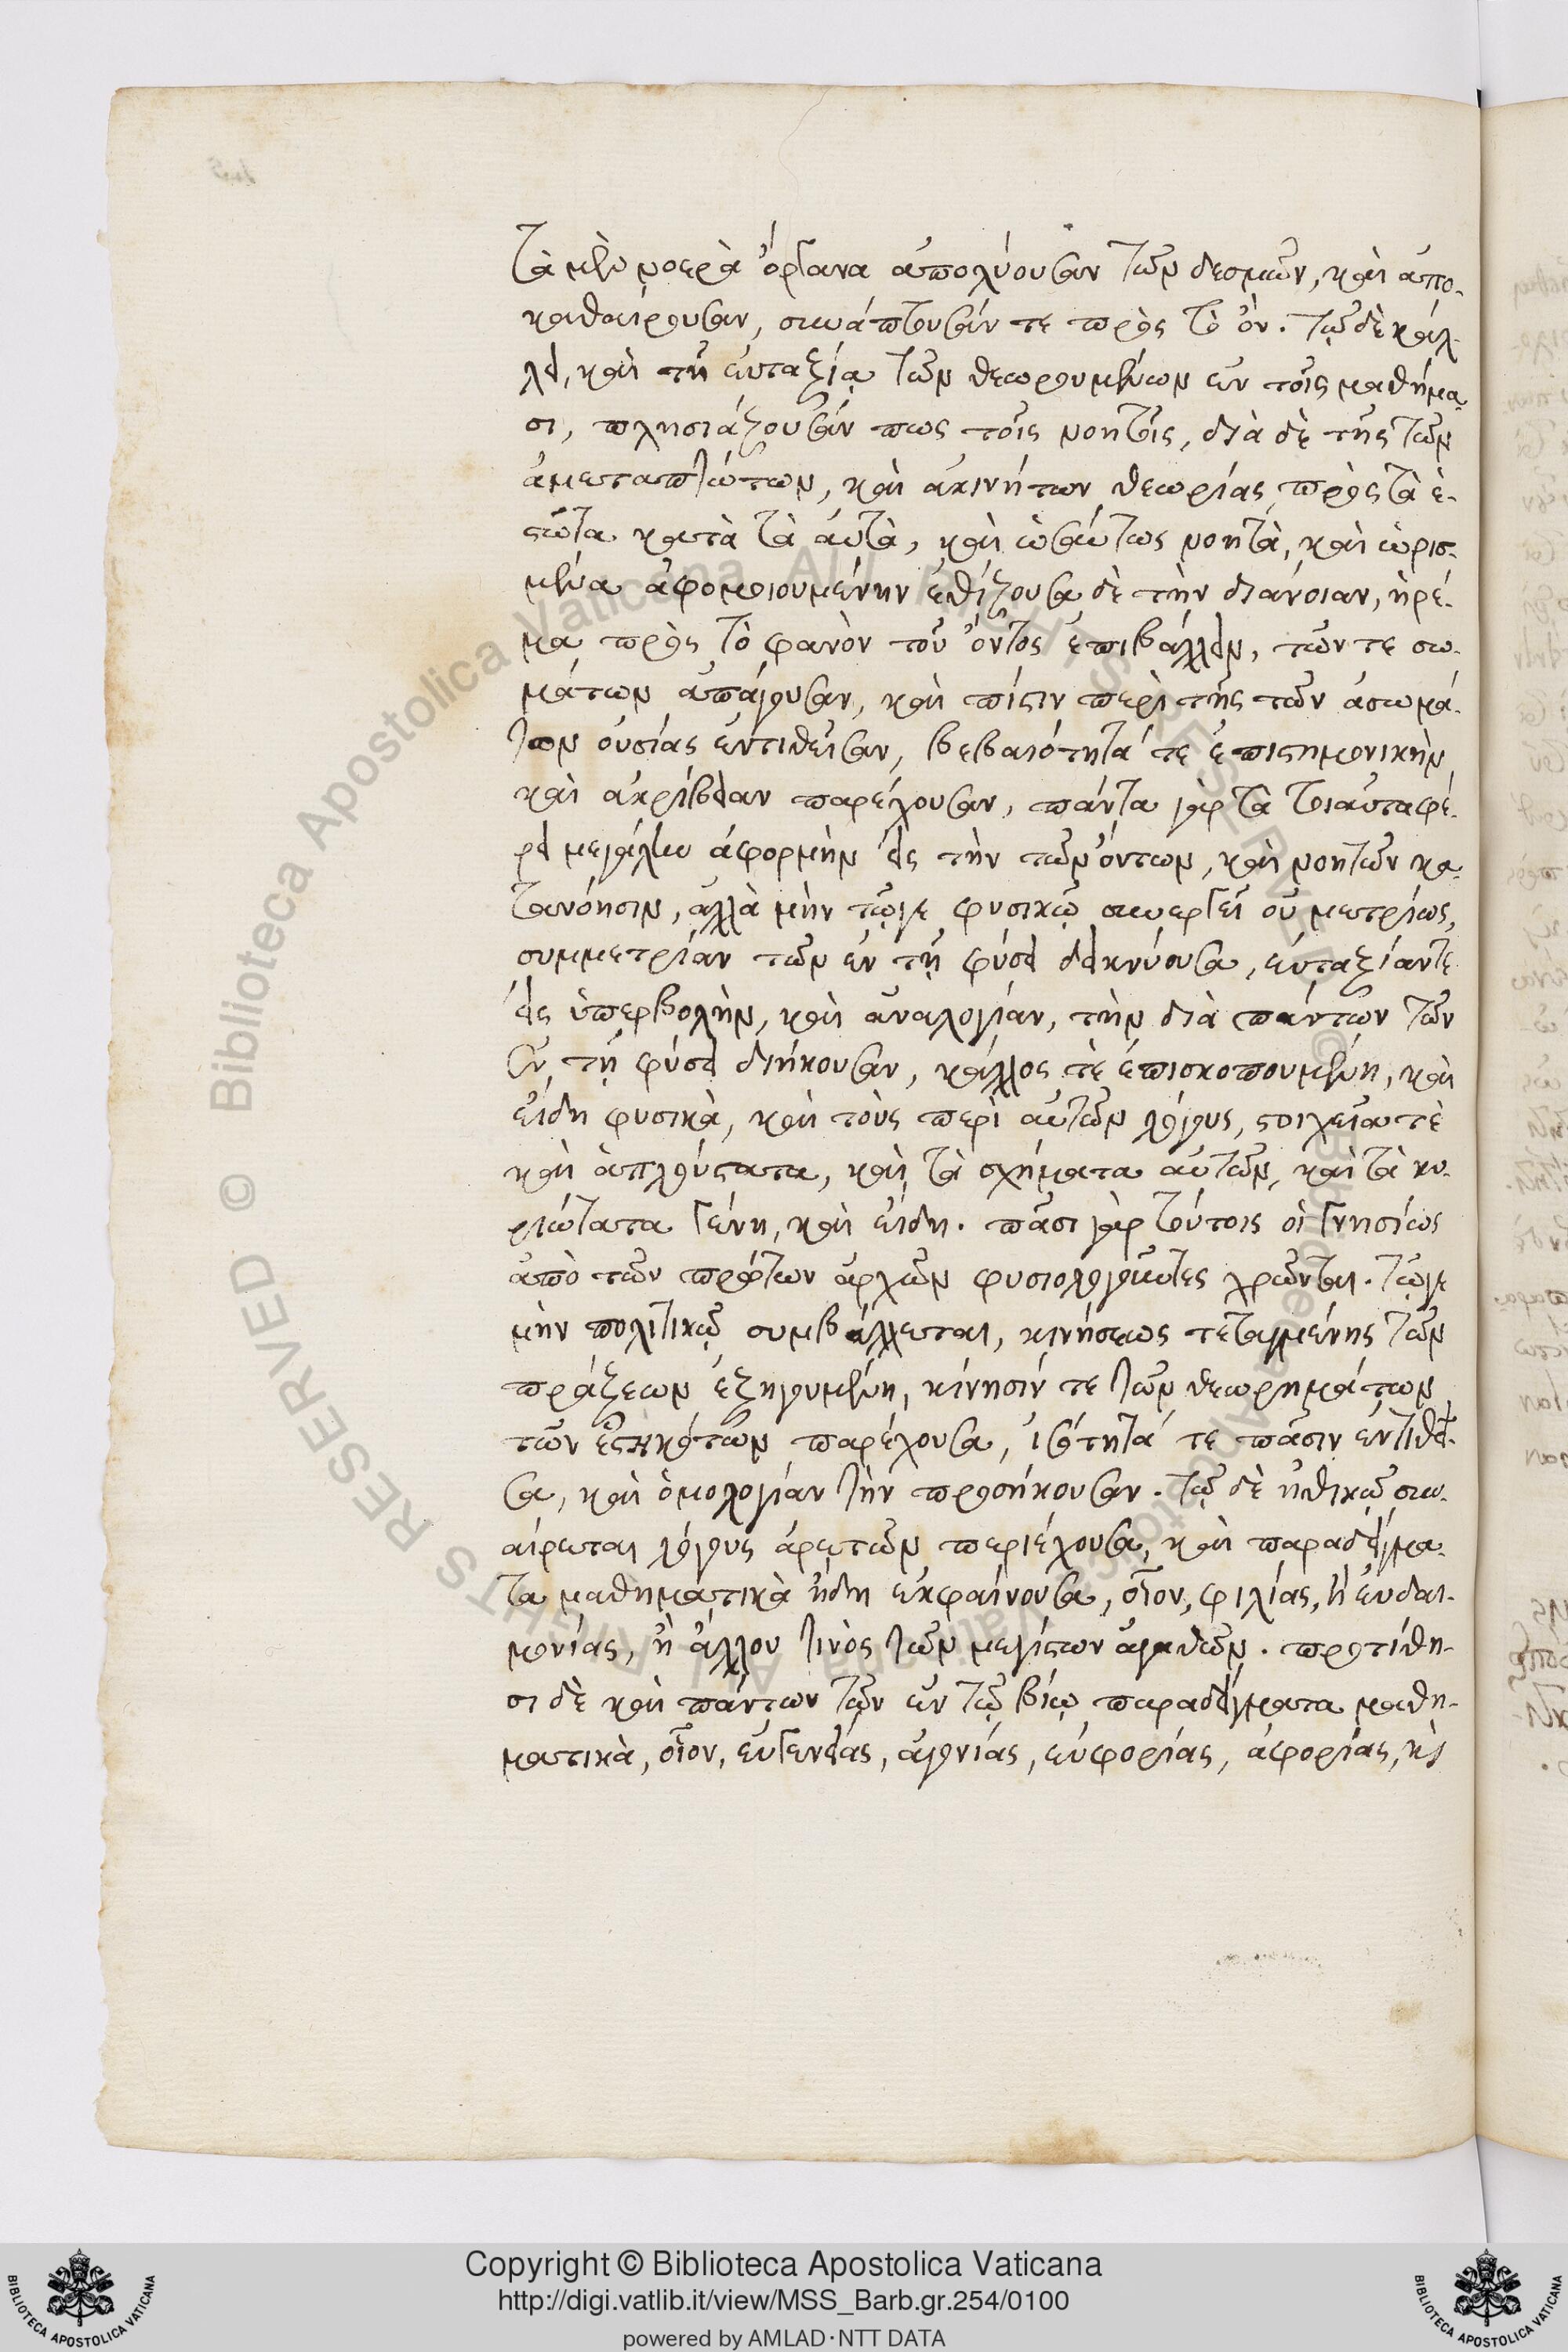 τὰ μὲν νοερὰ ὄργανα ἀπολύουσαν τῶν δεσμῶν, καὶ ἀπο-
καθαίρουσαν, συνάπτουσάν τε πρὸς τὸ ὄν. τῷ δὲ κάλ-
λει, καὶ τῇ εὐταξίᾳ τῶν θεωρουμένων ἐν τοῖς μαθήμα-
σι, πλησιάζουσάν πως τοῖς νοητοῖς, διὰ δὲ τῆς τῶν
ἀμεταπτώτων, καὶ ἀκινήτων θεωρίας, πρὸς τὰ ἑ-
στῶτα κατὰ τὰ αὐτὰ, καὶ ὡσαύτως νοητὰ, καὶ ὡρισ-
μένα ἀφομοιουμένην ἐθίζουσα δὲ τὴν διάνοιαν, ἠρέ-
μα πρὸς τὸ φανὸν τοῦ ὄντος ἐπιβάλλειν, τῶν τε σω-
μάτων ἀπάγουσαν, καὶ πίστιν περὶ τῆς τῶν ἀσωμά-
των οὐσίας ἐντιθεῖσαν, βεβαιότητά τε ἐπιστημονικὴν
καὶ ἀκρίβειαν παρέχουσαν, πάντα γὰρ τὰ τοιαῦτα φέ-
ρει μεγάλην ἀφορμὴν εἰς τὴν τῶν ὄντων, καὶ νοητῶν κα-
τανόησιν, ἀλλὰ μὴν τῷγε φυσικῷ συνεργεῖ οὐ μετρίως,
συμμετρίαν τῶν ἐν τῇ φύσει δεικνύουσα, εὐταξίαν τε
εἰς ὑπερβολὴν, καὶ ἀναλογίαν, τὴν διὰ πάντων τῶν
ἐν τῇ φύσει διήκουσαν, κάλλος τὲ ἐπισκοπουμένη, καὶ
εἴδη φυσικὰ, καὶ τοὺς περὶ αὐτῶν λόγους, στοιχεῖα τὲ
καὶ ἁπλούστατα, καὶ τὰ σχήματα αὐτῶν, καὶ τὰ κυ-
ριώτατα γένη, καὶ εἴδη. πᾶσι γὰρ τούτοις οἱ γνησίως
ἀπὸ τῶν πρώτων ἀρχῶν φυσιολογοῦντες χρῶνται. τῷγε
μὴν πολιτικῷ συμβάλλεται, κινήσεως τεταγμένης τῶν
πράξεων ἐξηγουμένη, κίνησίν τε τῶν θεωρημάτων
τῶν ἑστηκότων παρέχουσα, ἰσότητά τε πᾶσιν ἐντιθεῖ-
σα, καὶ ὁμολογίαν τὴν προσήκουσαν. τῷ δὲ ἠθικῷ συν-
αίρεται λόγους ἀρετῶν περιέχουσα, καὶ παραδείγμα-
τα μαθηματικὰ ἤδη ἐκφαίνουσα, οἷον, φιλίας, ἢ εὐδαι-
μονίας, ἢ ἄλλου τινὸς τῶν μεγίστων ἀγαθῶν. προτίθη-
σι δὲ καὶ πάντων τῶν ἐν τῷ βίῳ παραδείγματα μαθη-
ματικὰ, οἷον, εὐγενείας, ἀγονίας, εὐφορίας, ἀφορίας, κὶ
Copyright © Biblioteca Apostolica Vaticana
http://digi.vatlib.it/view/MSS_Barb.gr.254/0100
powered by AMLAD·NTT DATA
BIBLIOTECA APOSTOLICA VATICANA
BIBLIOTECA APOSTOLICA VATICANA